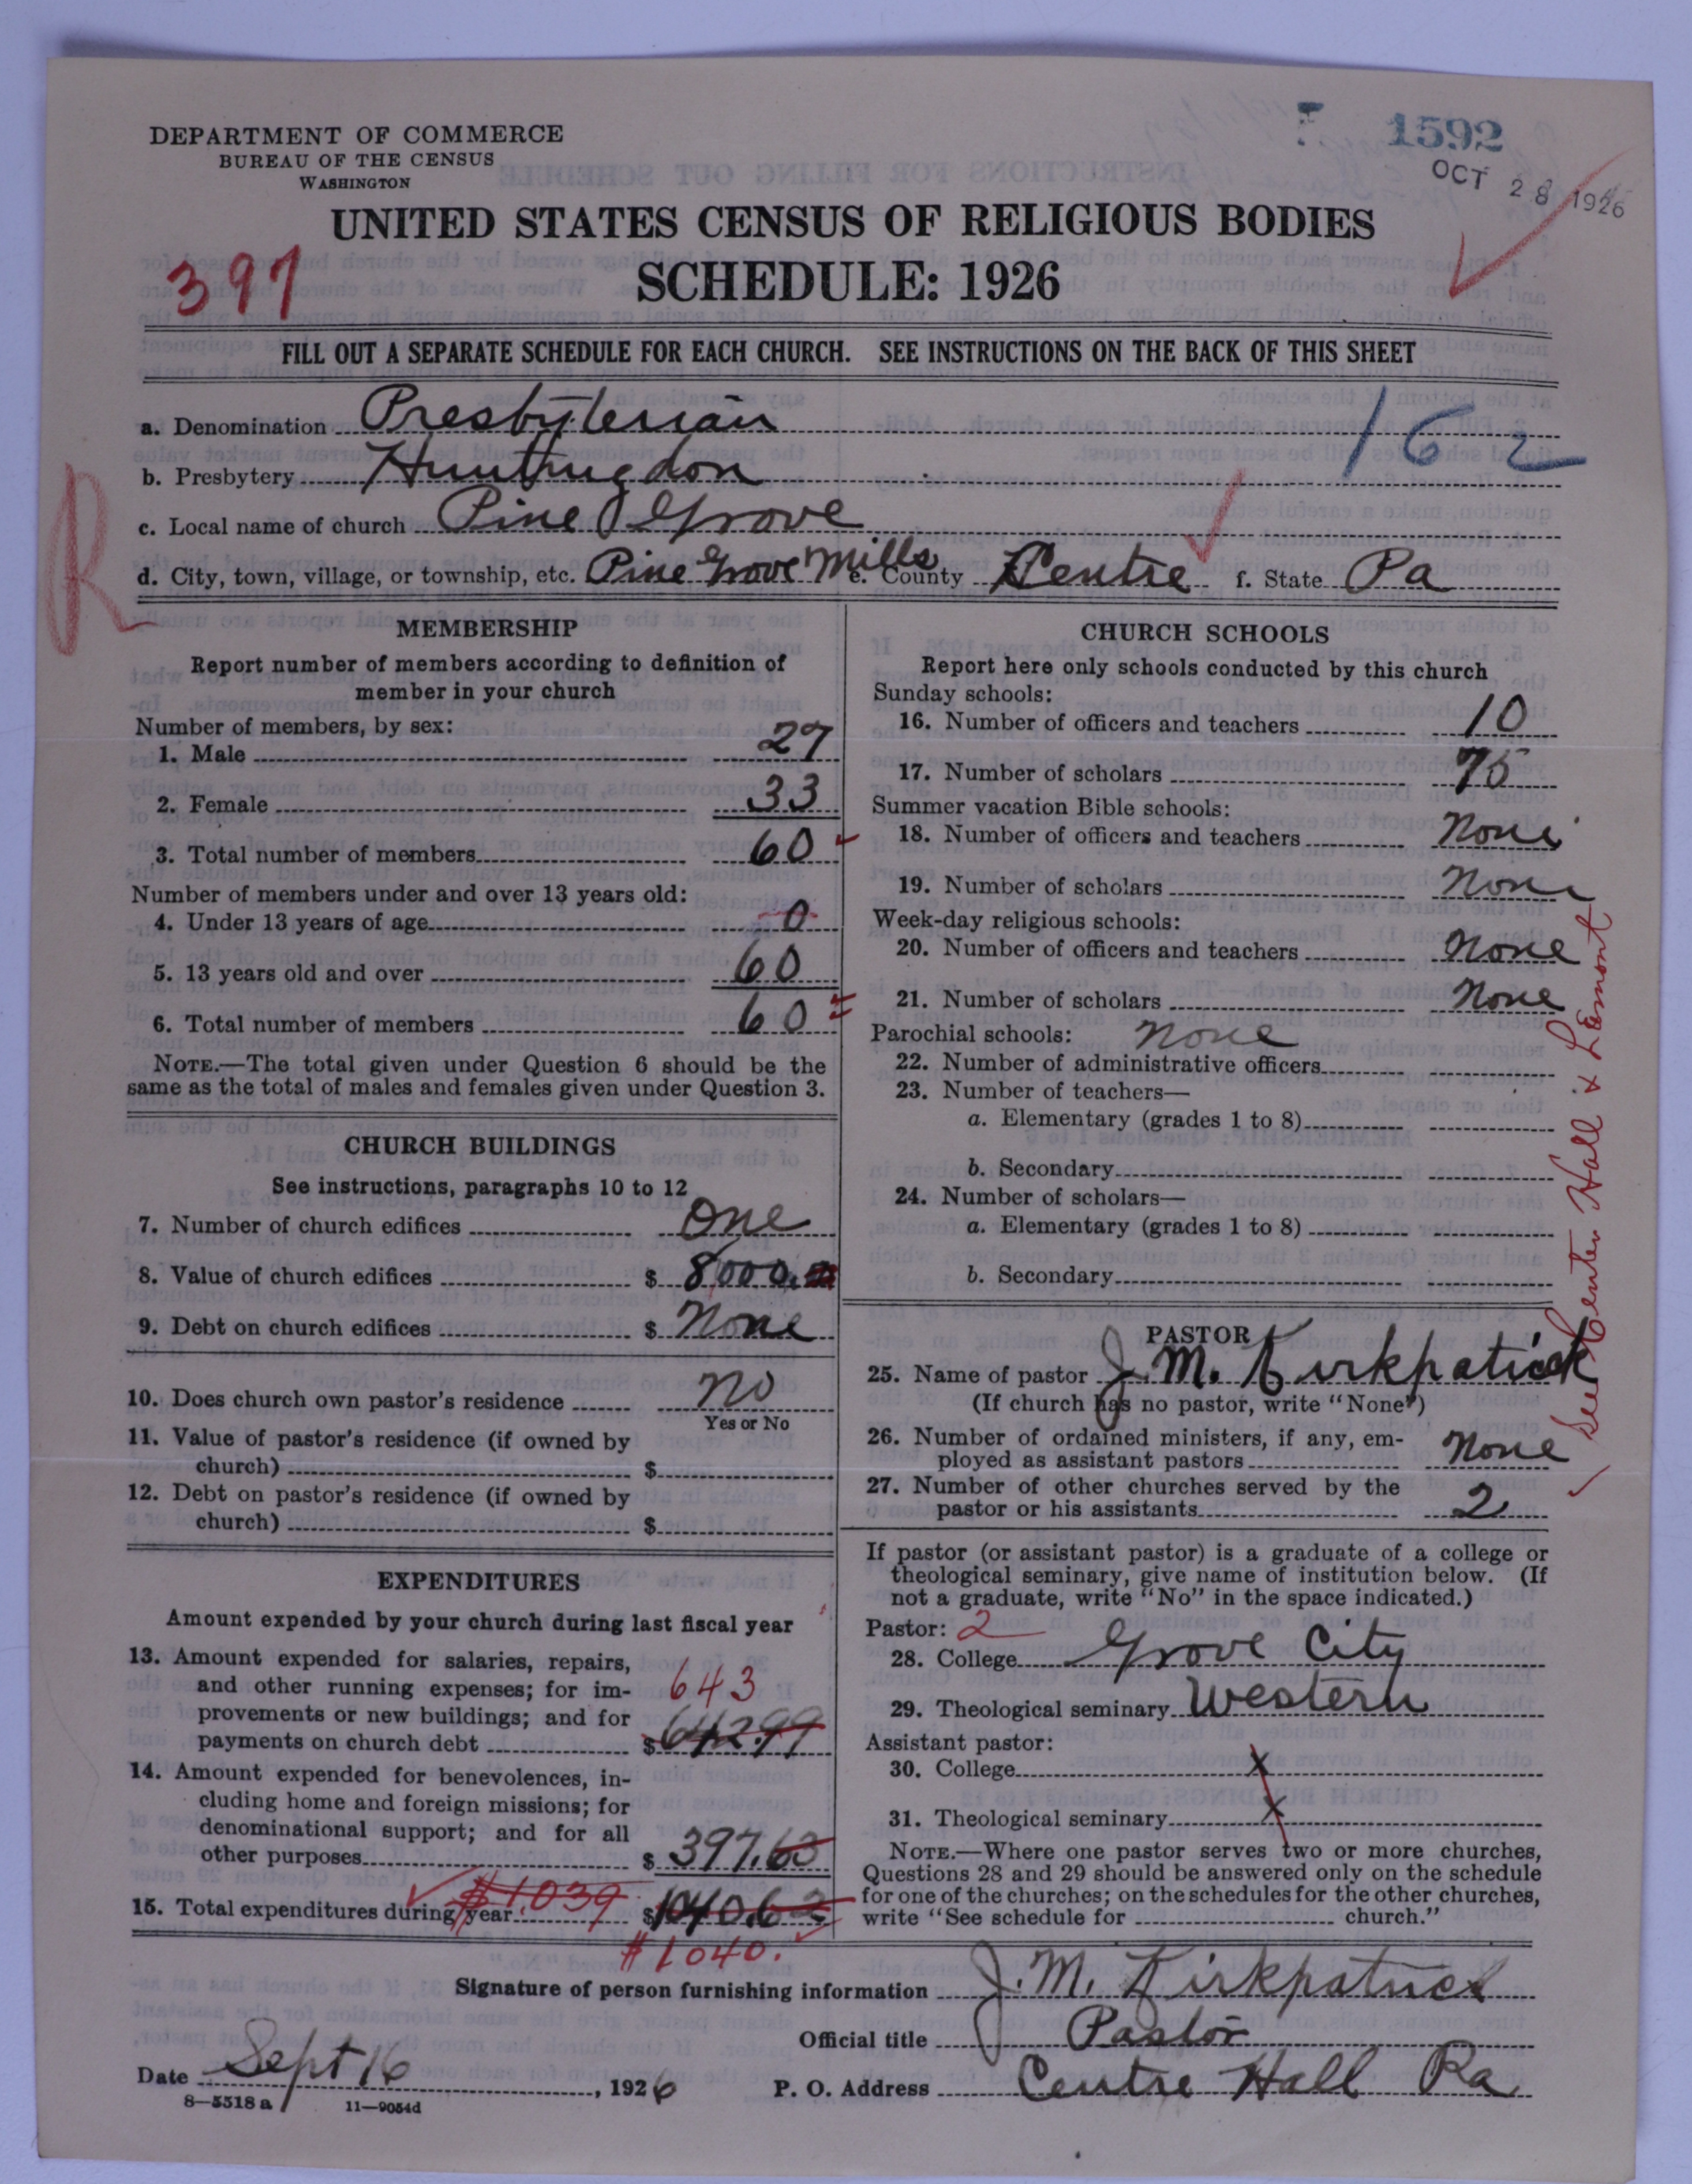 DEPARTMENT OF COMMERCE
BUREAU OF THE CENSUS
WASHINGTON
1592
OCT 28 1926
UNITED STATES CENSUS OF RELIGIOUS BODIES
397
SCHEDULE: 1926
FILL OUT A SEPARATE SCHEDULE FOR EACH CHURCH. SEE INSTRUCTIONS ON THE BACK OF THIS SHEET
a. Denomination Presbyterian
162
b. Presbytery Huntingdon
R
c. Local name of church Pine Grove
d. City, town, village, or township, etc. Pine Grove Mills e. County Centre f. State Pa
MEMBERSHIP
Report number of members according to definition of
member in your church
Number of members, by sex:
1. Male 27
2. Female 33
3. Total number of members 60
Number of members under and over 13 years old:
4. Under 13 years of age 0
5. 13 years old and over 60
6. Total number of members 60
NOTE.—The total given under Question 6 should be the
same as the total of males and females given under Question 3.
CHURCH BUILDINGS
See instructions, paragraphs 10 to 12
7. Number of church edifices One
8. Value of church edifices $ 8000.
9. Debt on church edifices $ None
10. Does church own pastor's residence No
Yes or No
11. Value of pastor's residence (if owned by
church) $
12. Debt on pastor's residence (if owned by
church) $
EXPENDITURES
Amount expended by your church during last fiscal year
13. Amount expended for salaries, repairs,
and other running expenses; for im- 643
provements or new buildings; and for
payments on church debt $ 642.99
14. Amount expended for benevolences, in-
cluding home and foreign missions; for
denominational support; and for all
other purposes $ 397.63
15. Total expenditures during year $1.039 $1040.62
$1040.
CHURCH SCHOOLS
Report here only schools conducted by this church
Sunday schools:
16. Number of officers and teachers 10
17. Number of scholars 75
Summer vacation Bible schools:
18. Number of officers and teachers None
19. Number of scholars None
Week-day religious schools:
20. Number of officers and teachers None
21. Number of scholars None
Parochial schools: None
22. Number of administrative officers
23. Number of teachers—
a. Elementary (grades 1 to 8)
b. Secondary
24. Number of scholars—
a. Elementary (grades 1 to 8)
b. Secondary
See Center Hall & Lemont
PASTOR
25. Name of pastor J. M. Kirkpatrick
(If church has no pastor, write "None")
26. Number of ordained ministers, if any, em-
ployed as assistant pastors None
27. Number of other churches served by the
pastor or his assistants 2
If pastor (or assistant pastor) is a graduate of a college or
theological seminary, give name of institution below. (If
not a graduate, write "No" in the space indicated.)
Pastor: 2
28. College Grove City
29. Theological seminary Western
Assistant pastor:
30. College x
31. Theological seminary x
NOTE.—Where one pastor serves two or more churches,
Questions 28 and 29 should be answered only on the schedule
for one of the churches; on the schedules for the other churches,
write "See schedule for church."
Signature of person furnishing information J. M. Kirkpatrick
Official title Pastor
Date Sept 16, 1926
P. O. Address Centre Hall Pa
8—5518 a 11—9054d